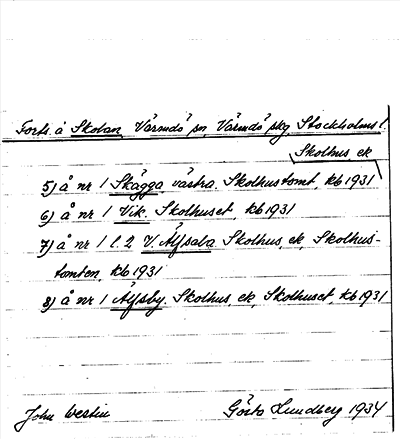 Forts. å Skolan, Värmdö sn, Värmdö skg, Stockholms l.
Skolhus, ek
5) å nr 1 Skägga västra. Skolhustomt, kb 1931
6) å nr 1 Vik. Skolhuset, kb 1931
7) å nr 1 l. 2 V. Älfsala. Skolhus, ek, Skolhus-
tomten, kb 1931
8) å nr 1 Älfsby. Skolhus, ek, Skolhuset, kb 1931
John Westin Gösta Lundberg 1934